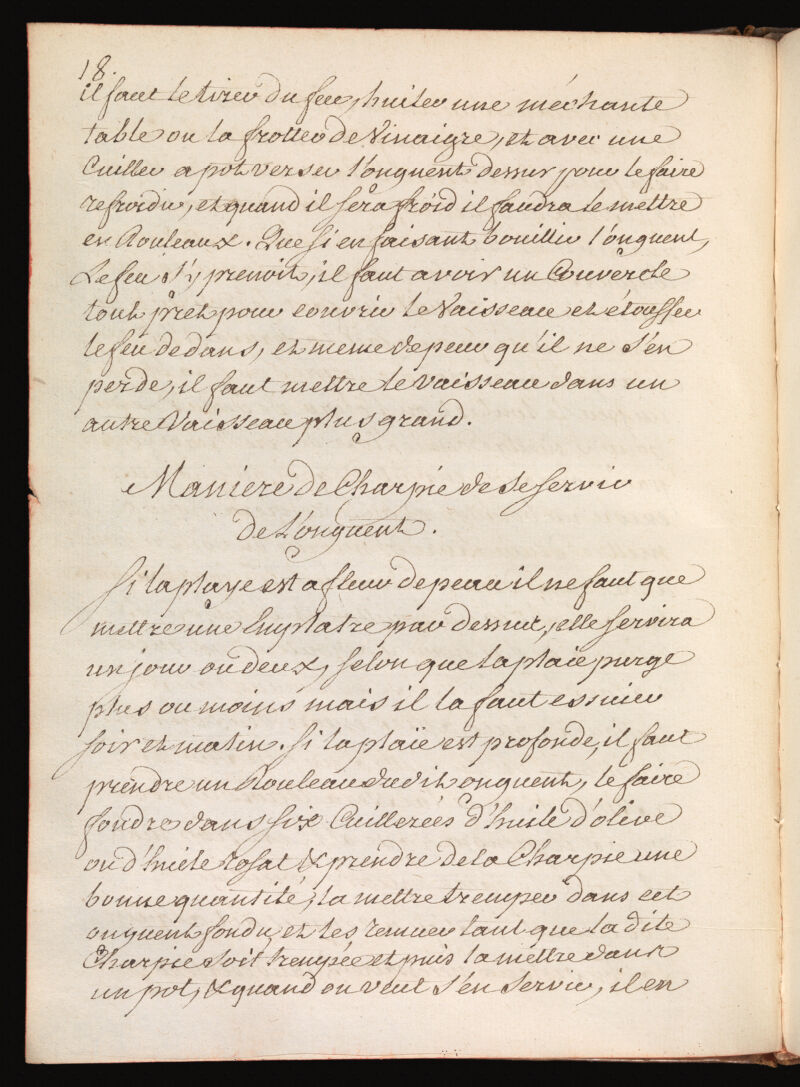 18.
il faut le tirer du feu, huiler une méchante
table ou la frotter de Vinaigre, et avec une
Cuiller a pot verser l'onguent dessus pour le faire
refroidir, et quand il sera froid il faudra le mettre
en Rouleaux. Que si en faisant bouillir l'onguent,
Le feu s'y prenoit, il faut avoir un Couvercle
tout prêt pour couvrir le Vaisseau et étouffer
le feu dedans, et meme de peur qu'il ne s'en
perde, il faut mettre le vaisseau dans un
autre Vaisseau plus grand.
Maniere de Charpie de se servir
de L'onguent.
Si la playe est a fleur de peau il ne faut que
mettre une Emplatre par dessus, elle servira
un jour ou deux, selon que la plaie purge
plus ou moins mais il la faut essuier
soir et matin. Si la plaïe est profonde, il faut
prendre un Rouleau dudit onguent, le faire
fondre dans six Cuillerées d'huile d'olive
ou d'huile rosat & prendre de la Charpie une
bonne quantité, la mettre tremper dans cet
onguent fondu, et les remuer tant que la dite
Charpie soit trempée et puis la mettre dans
un pot, & quand on veut s'en servir, il en